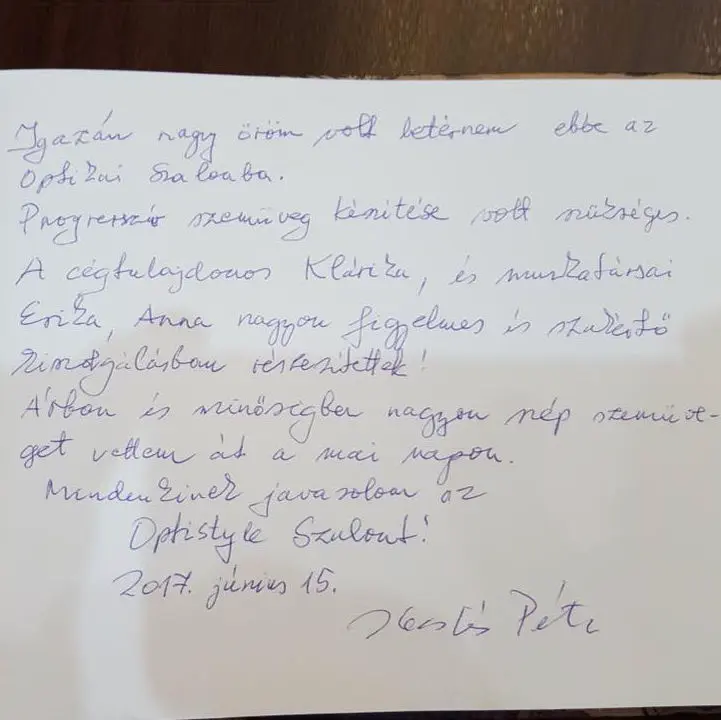 Igazán nagy öröm volt betérnem ebbe az
Optikai Szalonba.
Progresszív szemüveg készítése volt szükséges.
A cégtulajdonos Klárika, és munkatársai
Erika, Anna nagyon figyelmes és szakértő
kiszolgálásban részesítettek!
Árban és minőségben nagyon szép szemüve-
get vettem át a mai napon.
Mindenkinek javasolom az
Optistyle Szalont!
2017. június 15.
Péter